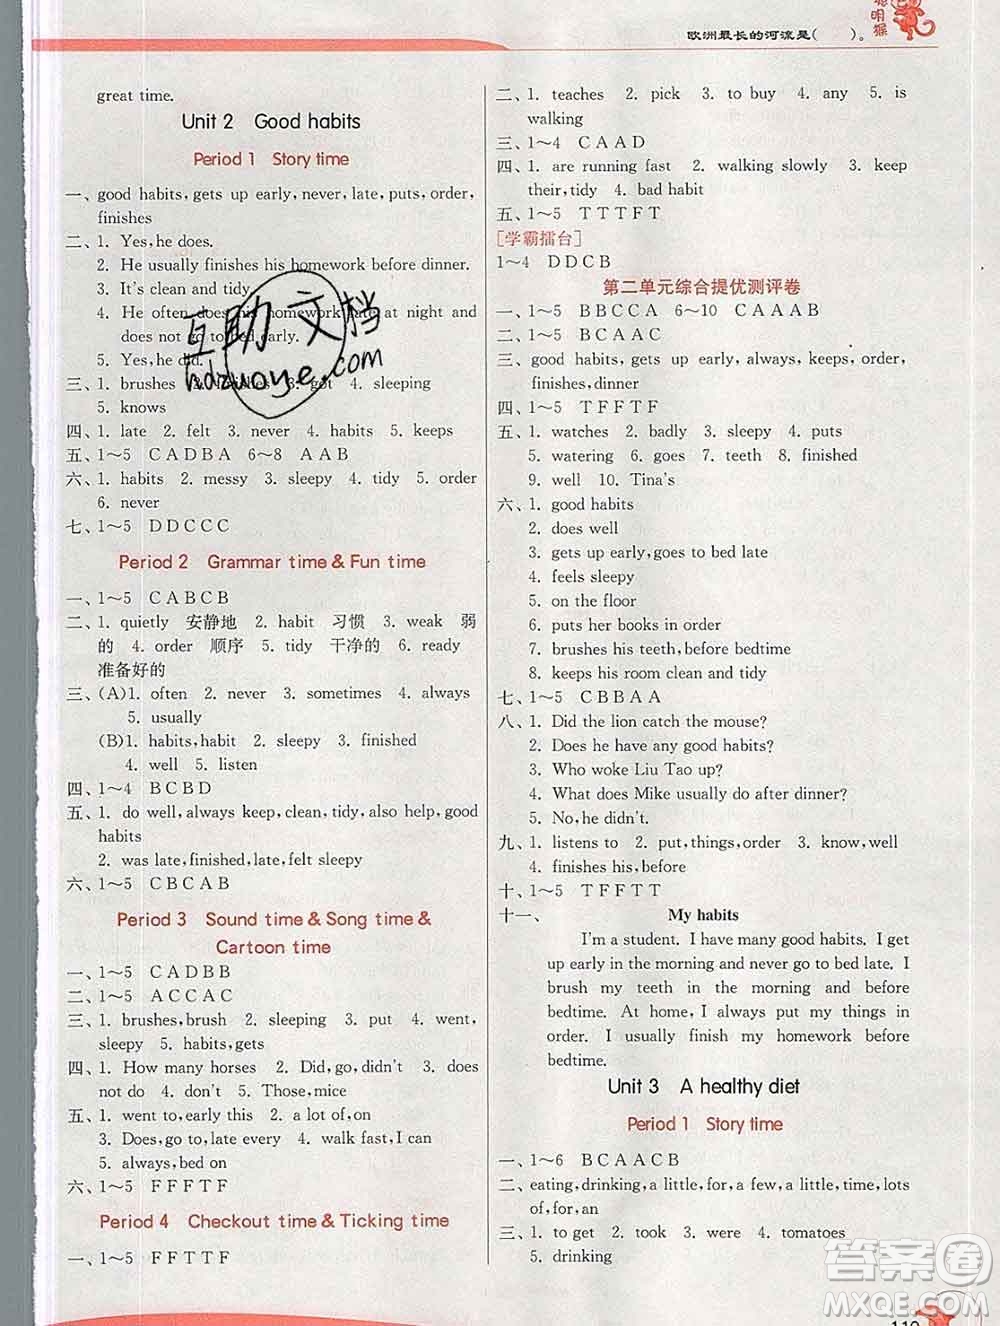 聪明猴
欧洲最长的河流是(　　)。
great time.
Unit 2　Good habits
Period 1　Story time
一、good habits, gets up early, never, late, puts, order,
finishes
二、1. Yes, he does.
2. He usually finishes his homework before dinner.
3. It's clean and tidy.
4. He often does his homework late at night and
does not go to bed early.
5. Yes, he did.
三、1. brushes　2. finishes　3. got　4. sleeping
5. knows
四、1. late　2. felt　3. never　4. habits　5. keeps
五、1～5　C A D B A　6～8　A A B
六、1. habits　2. messy　3. sleepy　4. tidy　5. order
6. never
七、1～5　D D C C C
Period 2　Grammar time & Fun time
一、1～5　C A B C B
二、1. quietly　安静地　2. habit　习惯　3. weak　弱
的　4. order　顺序　5. tidy　干净的　6. ready
准备好的
三、(A)1. often　2. never　3. sometimes　4. always
5. usually
(B)1. habits, habit　2. sleepy　3. finished
4. well　5. listen
四、1～4　B C B D
五、1. do well, always keep, clean, tidy, also help, good
habits
2. was late, finished, late, felt sleepy
六、1～5　C B C A B
Period 3　Sound time & Song time &
Cartoon time
一、1～5　C A D B B
二、1～5　A C C A C
三、1. brushes, brush　2. sleeping　3. put　4. went,
sleepy　5. habits, gets
四、1. How many horses　2. Did, go, didn't　3. does
not do　4. don't　5. Those, mice
五、1. went to, early this　2. a lot of, on
3. Does, go to, late every　4. walk fast, I can
5. always, bed on
六、1～5　F F F T F
Period 4　Checkout time & Ticking time
一、1～5　F F T T F
二、1. teaches　2. pick　3. to buy　4. any　5. is
walking
三、1～4　C A A D
四、1. are running fast　2. walking slowly　3. keep
their, tidy　4. bad habit
五、1～5　T T T F T
[学霸擂台]
1～4　D D C B
第二单元综合提优测评卷
一、1～5　B B C C A　6～10　C A A A B
二、1～5　B C A A C
三、good habits, gets up early, always, keeps, order,
finishes, dinner
四、1～5　T F F T F
五、1. watches　2. badly　3. sleepy　4. puts
5. watering　6. goes　7. teeth　8. finished
9. well　10. Tina's
六、1. good habits
2. does well
3. gets up early, goes to bed late
4. feels sleepy
5. on the floor
6. puts her books in order
7. brushes his teeth, before bedtime
8. keeps his room clean and tidy
七、1～5　C B B A A
八、1. Did the lion catch the mouse?
2. Does he have any good habits?
3. Who woke Liu Tao up?
4. What does Mike usually do after dinner?
5. No, he didn't.
九、1. listens to　2. put, things, order　3. know, well
4. finishes his, before
十、1～5　T F F T T
十一、　My habits
I'm a student. I have many good habits. I get
up early in the morning and never go to bed late. I
brush my teeth in the morning and before
bedtime. At home, I always put my things in
order. I usually finish my homework before
bedtime.
Unit 3　A healthy diet
Period 1　Story time
一、1～6　B C A A C B
二、eating, drinking, a little, for, a few, a little, time, lots
of, for, an
三、1. to get　2. took　3. were　4. tomatoes
5. drinking
互助文档
hdzuoye.com
答案圈
MXQE.COM